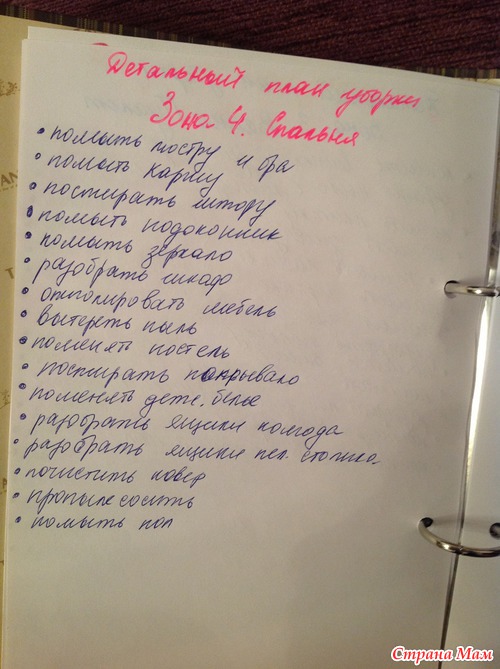 Детальный план уборки
Зона 4. Спальня
• помыть люстру и бра
• помыть карниз
• постирать штору
• помыть подоконник
• помыть зеркало
• разобрать шкаф
• отполировать мебель
• вытереть пыль
• поменять постель
• постирать покрывало
• поменять детс. белье
• разобрать ящики комода
• разобрать ящики пел. столика
• почистить ковер
• пропылесосить
• помыть пол
Страна Мам